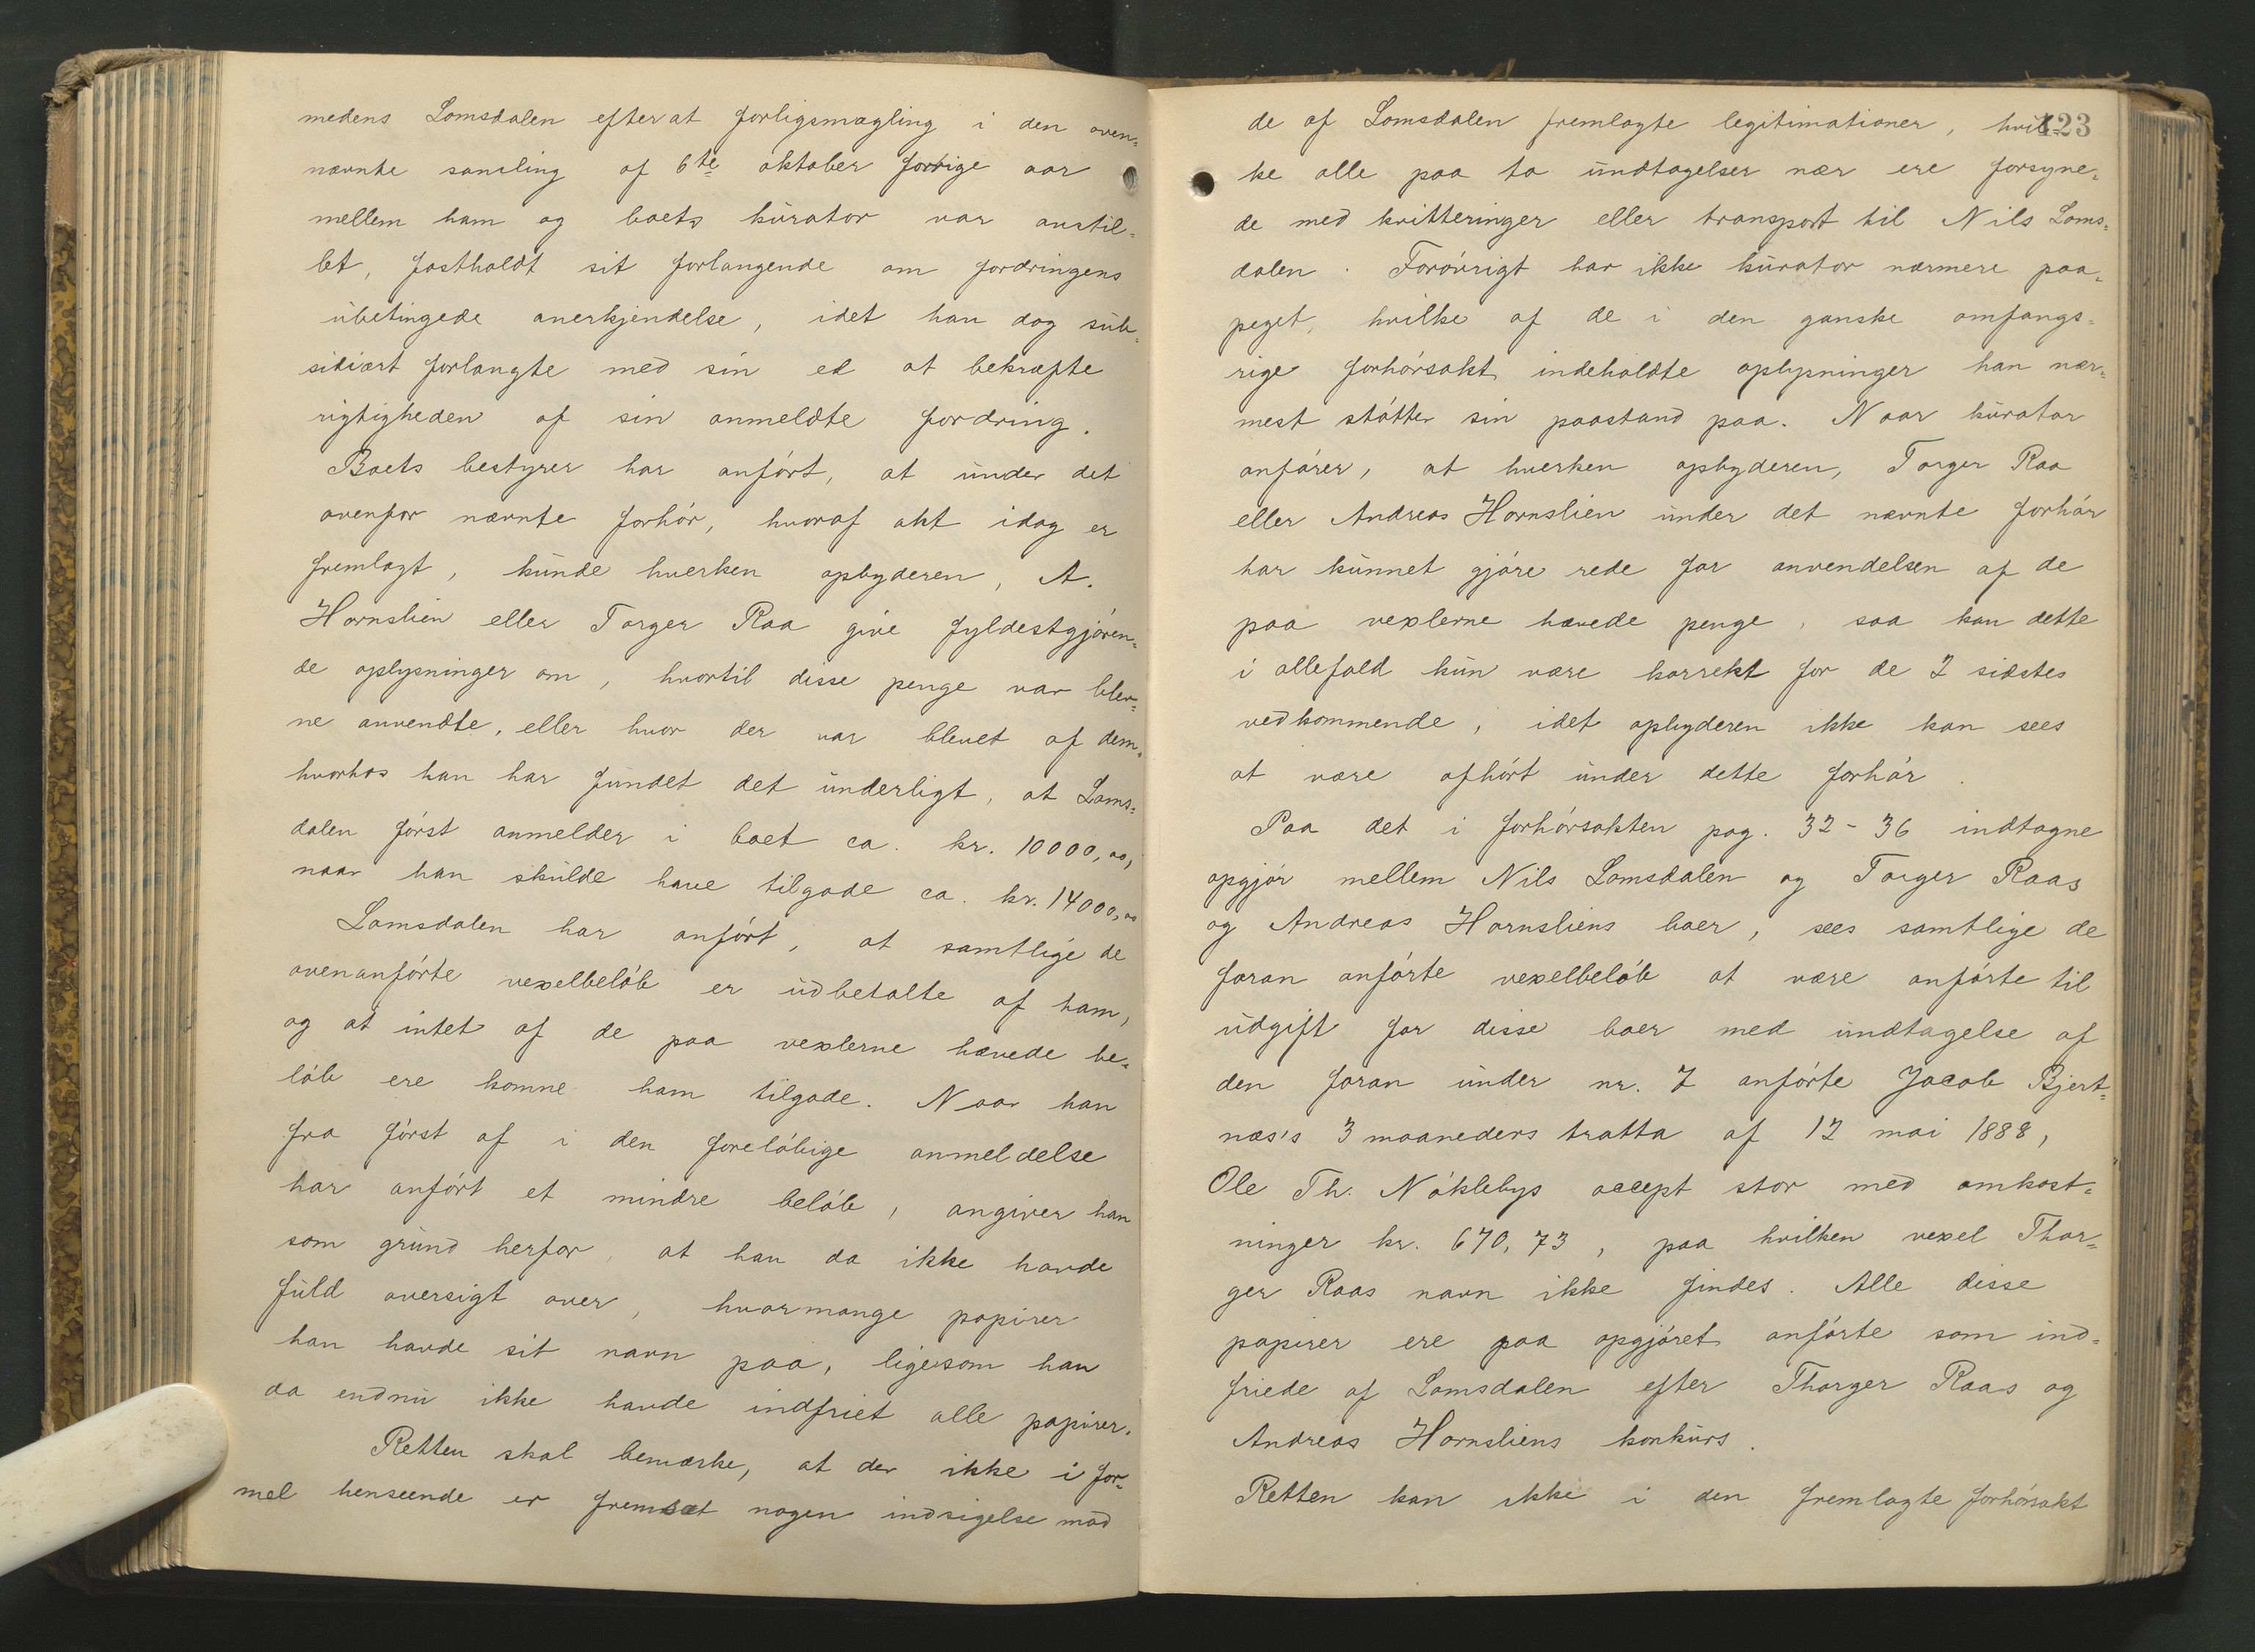 medens Lomsdalen efterat forligsmægling i den oven=
nævnte samling af 6te oktober forrige aar
mellem ham og boets kurator var anstil=
let, fastholdt sit forlangende om fordringens
ubetingede anerkjendelse, idet han dog sub=
sidiært forlangte med sin ed at bekræfte
rigtigheden af sin anmeldte fordring.
Boets bestyrer har anført, at under det
ovenfor nævnte forhør, hvoraf akt idag er
fremlagt, kunde hverken opbyderen, A.
Hornslien eller Torger Raa give fyldestgjøren=
de oplysninger om, hvortil disse penge var blev=
ne anvendte, eller hvor der var blevet af dem,
hvorhos han har fundet det underligt, at Loms=
dalen først anmelder i boet ca. kr. 10000,00,
naar han skulde have tilgode ca. kr. 14000,00
Lomsdalen har anført, at samtlige de
ovenanførte vexelbeløb er udbetalte af ham,
og at intet af de paa vexlerne hævede be=
løb ere komne ham tilgode. Naar han
fra først af i den foreløbige anmeldelse
har anført et mindre beløb, angiver han
som grund herfor, at han da ikke havde
fuld oversigt over, hvormange papirer
han havde sit navn paa, ligesom han
da endnu ikke havde indfriet alle papirer.
Retten skal bemærke, at der ikke i for=
mel henseende er fremsat nogen indsigelse mod
423
de af Lomsdalen fremlagte legitimationer, hvil=
ke alle paa to undtagelser nær ere forsyne=
de med kvitteringer eller transport til Nils Loms=
dalen. Forøvrigt har ikke kurator nærmere paa=
peget, hvilke af de i den ganske omfangs=
rige forhørsakt indeholdte oplysninger han nær=
mest støtter sin paastand paa. Naar kurator
anfører, at hverken opbyderen, Torger Raa
eller Andreas Hornslien under det nævnte forhør
har kunnet gjøre rede for anvendelsen af de
paa vexlerne hævede penge, saa kan dette
i allefald kun være korrekt for de 2 sidstes
vedkommende, idet opbyderen ikke kan sees
at være afhørt under dette forhør.
Paa det i forhørsakten pag. 32-36 indtagne
opgjør mellem Nils Lomsdalen og Torger Raas
og Andreas Hornsliens boer, sees samtlige de
foran anførte vexelbeløb at være anførte til
udgift for disse boer med undtagelse af
den foran under nr. 7 anførte Jacob Bjert=
næs's 3 maaneders tratta af 12 mai 1888,
Ole Th. Nøklebys accept stor med omkost=
ninger kr. 670,73, paa hvilken vexel Thor=
ger Raas navn ikke findes. Alle disse
papirer ere paa opgjøret anførte som ind=
friede af Lomsdalen efter Thorger Raas og
Andreas Hornsliens konkurs.
Retten kan ikke i den fremlagte forhørsakt